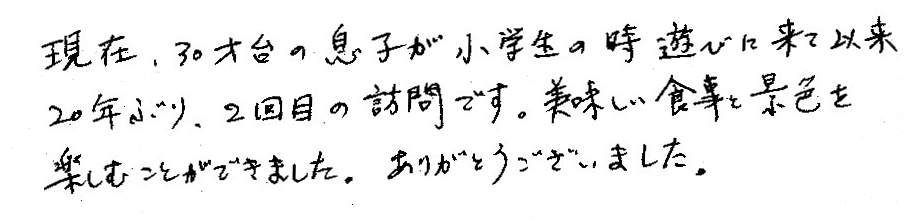 現在、30才台の息子が小学生の時遊びに来て以来
20年ぶり、2回目の訪問です。美味しい食事と景色を
楽しむことができました。ありがとうございました。